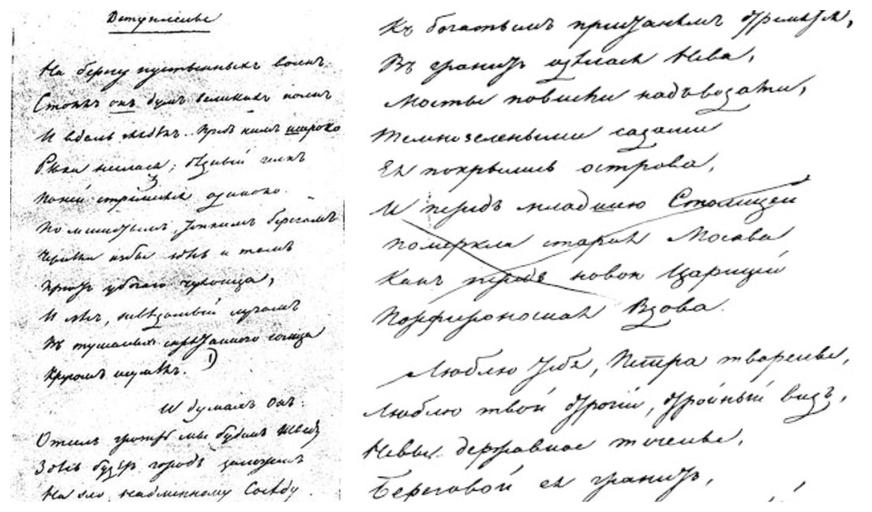 Вступленье
На берегу пустынныхъ волнъ
Стоялъ онъ думъ великихъ полнъ
И вдаль глядѣлъ. Предъ нимъ широко
Рѣка неслася; бѣдный челнъ
По ней стремился одиноко.
По мшистымъ, топкимъ берегамъ
Чернѣли избы здѣсь и тамъ
Пріютъ убогаго чухонца,
И лѣсъ, невѣдомый лучамъ
Въ туманѣ спрятаннаго солнца
Кругомъ шумѣлъ. 1)
И думалъ онъ:
Отсель грозить мы будемъ Шведу
Здѣсь будетъ городъ заложенъ
На зло надменному Сосѣду.
Къ богатымъ пристанямъ стремятся,
Въ гранитъ одѣлася Нева,
Мосты повисли надъ водами,
Темнозелеными садами
Ея покрылись острова,
И передъ младшею Столицей
Померкла старая Москва
Какъ передъ новой Царицей
Порфироносная Вдова.
Люблю тебя, Петра творенье,
Люблю твой строгій, стройный видъ,
Невы державное теченье,
Береговой ея гранитъ,